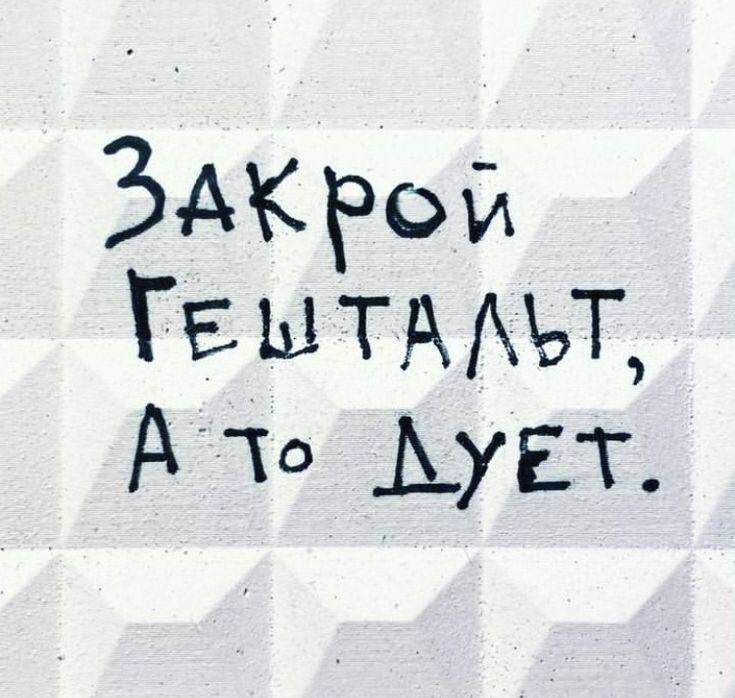 Закрой
Гештальт,
А то Дует.